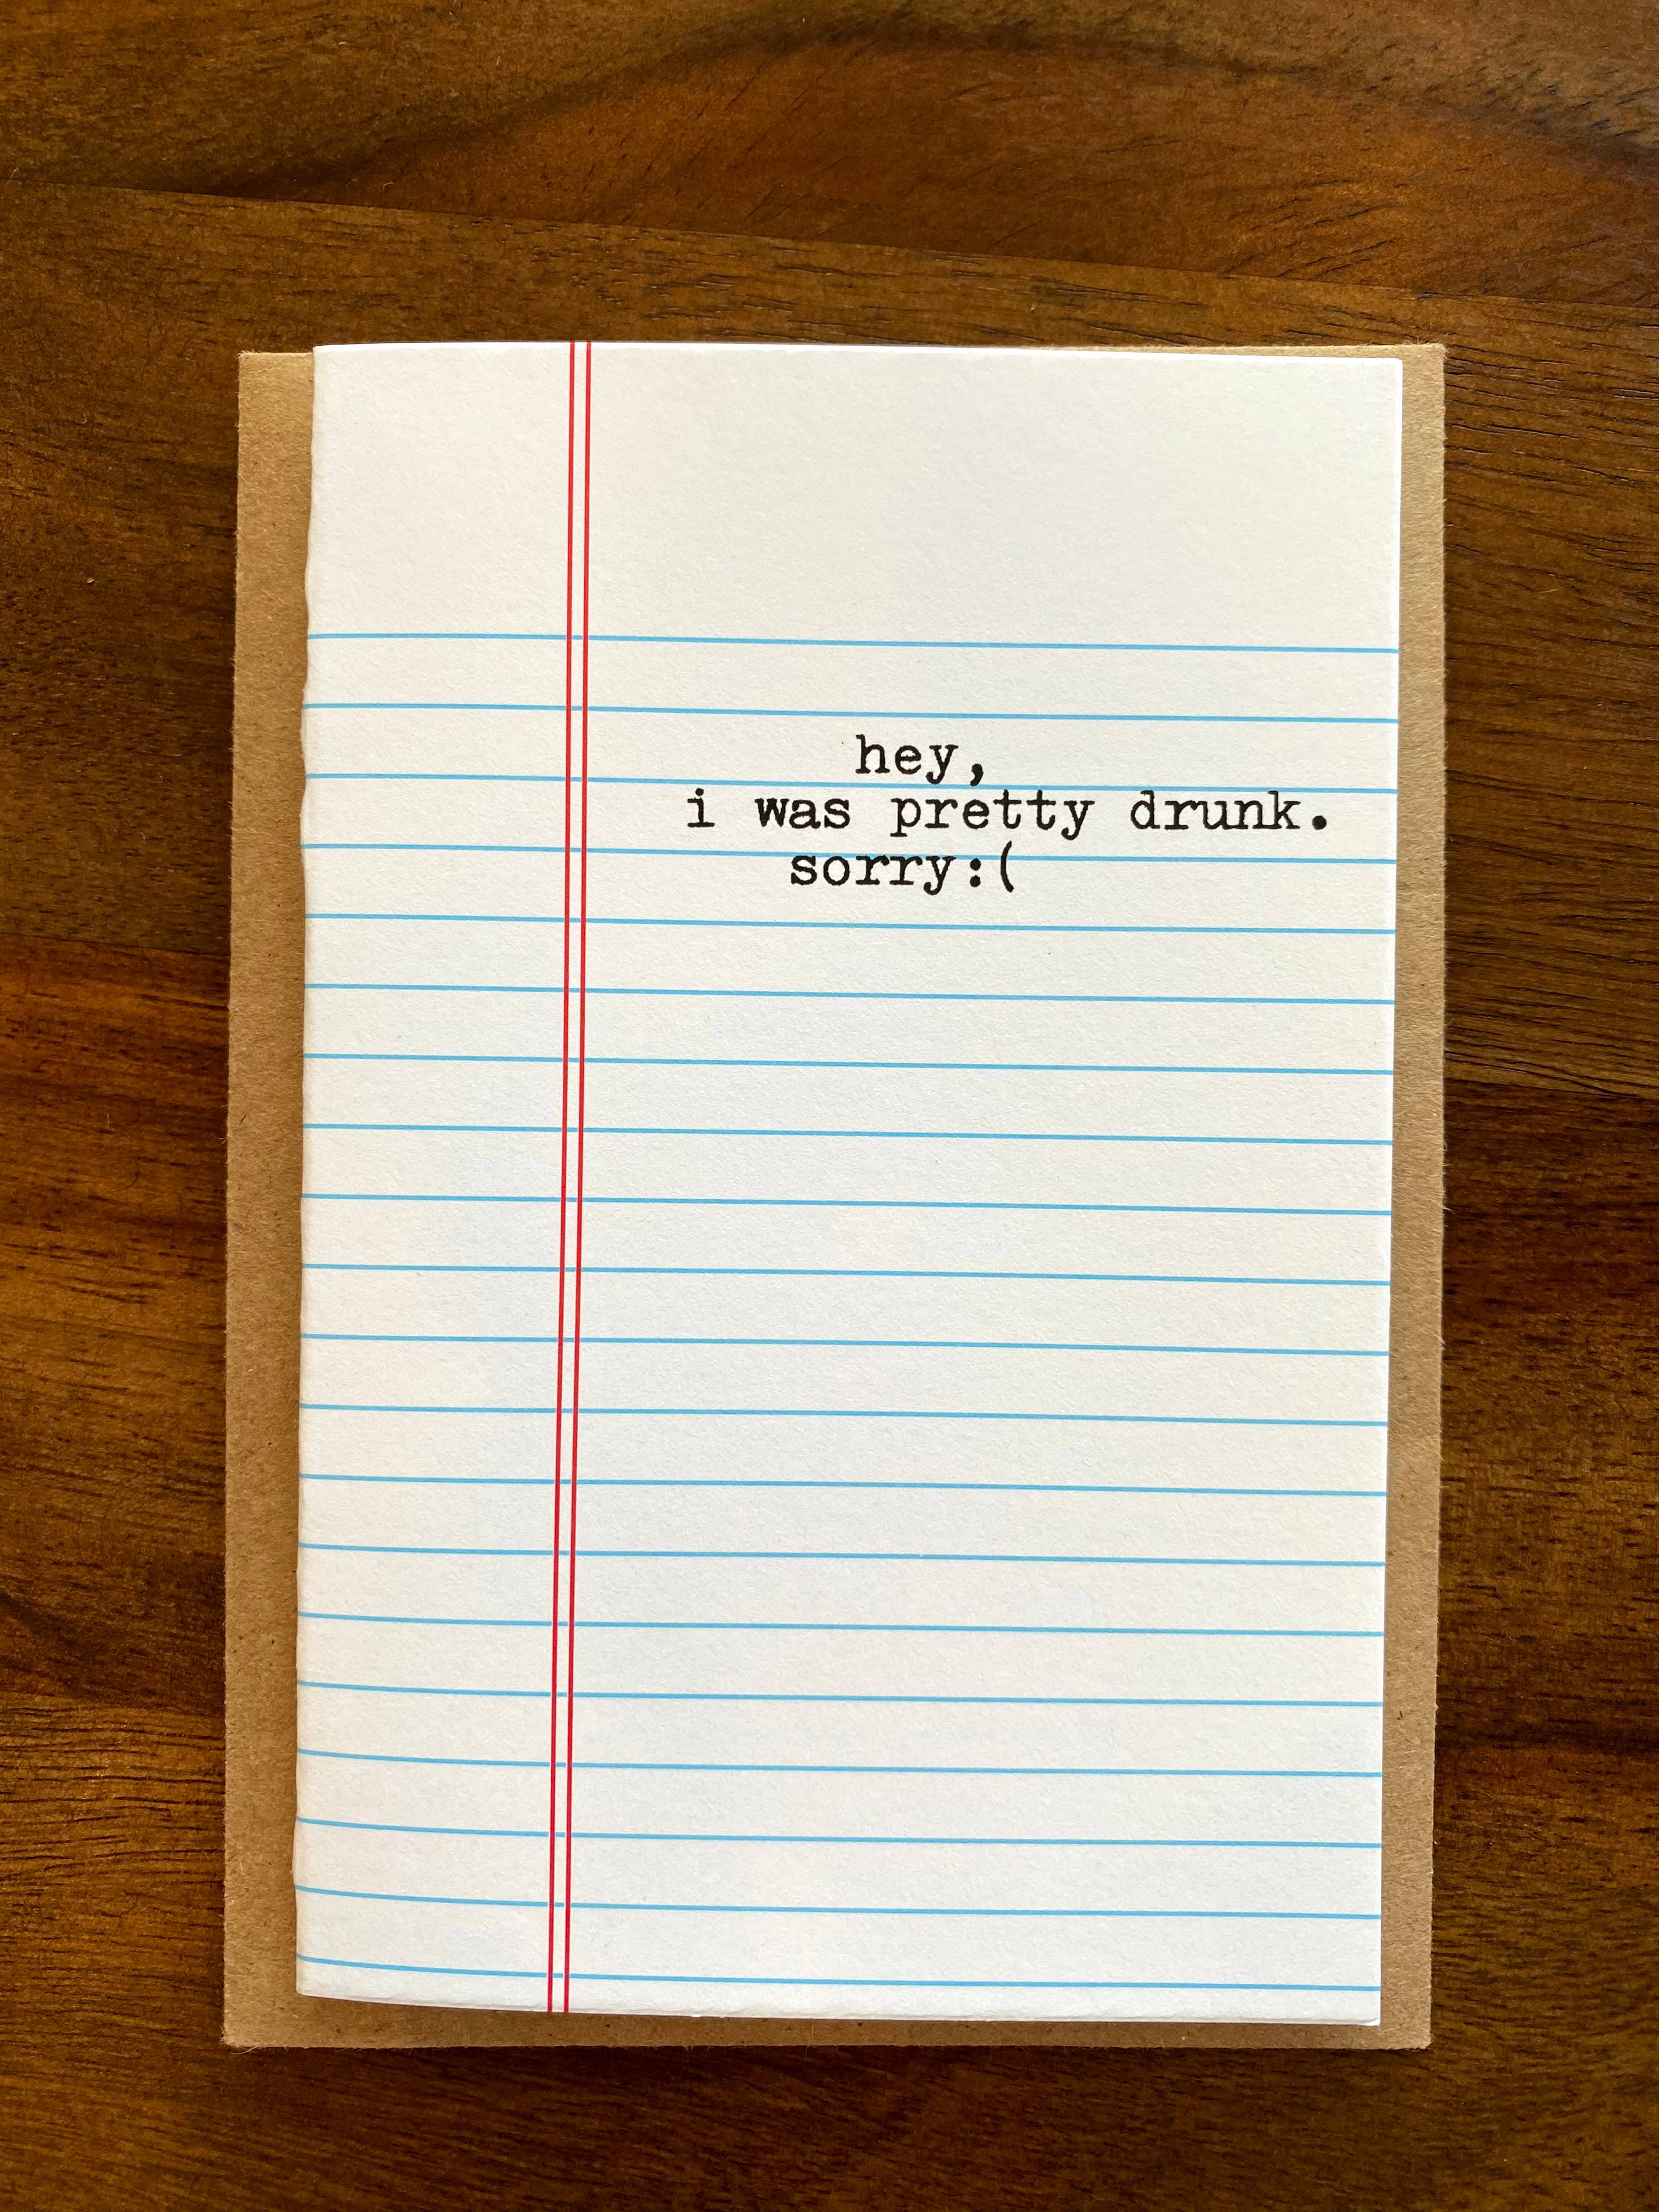 hey,
i was pretty drunk.
sorry:(